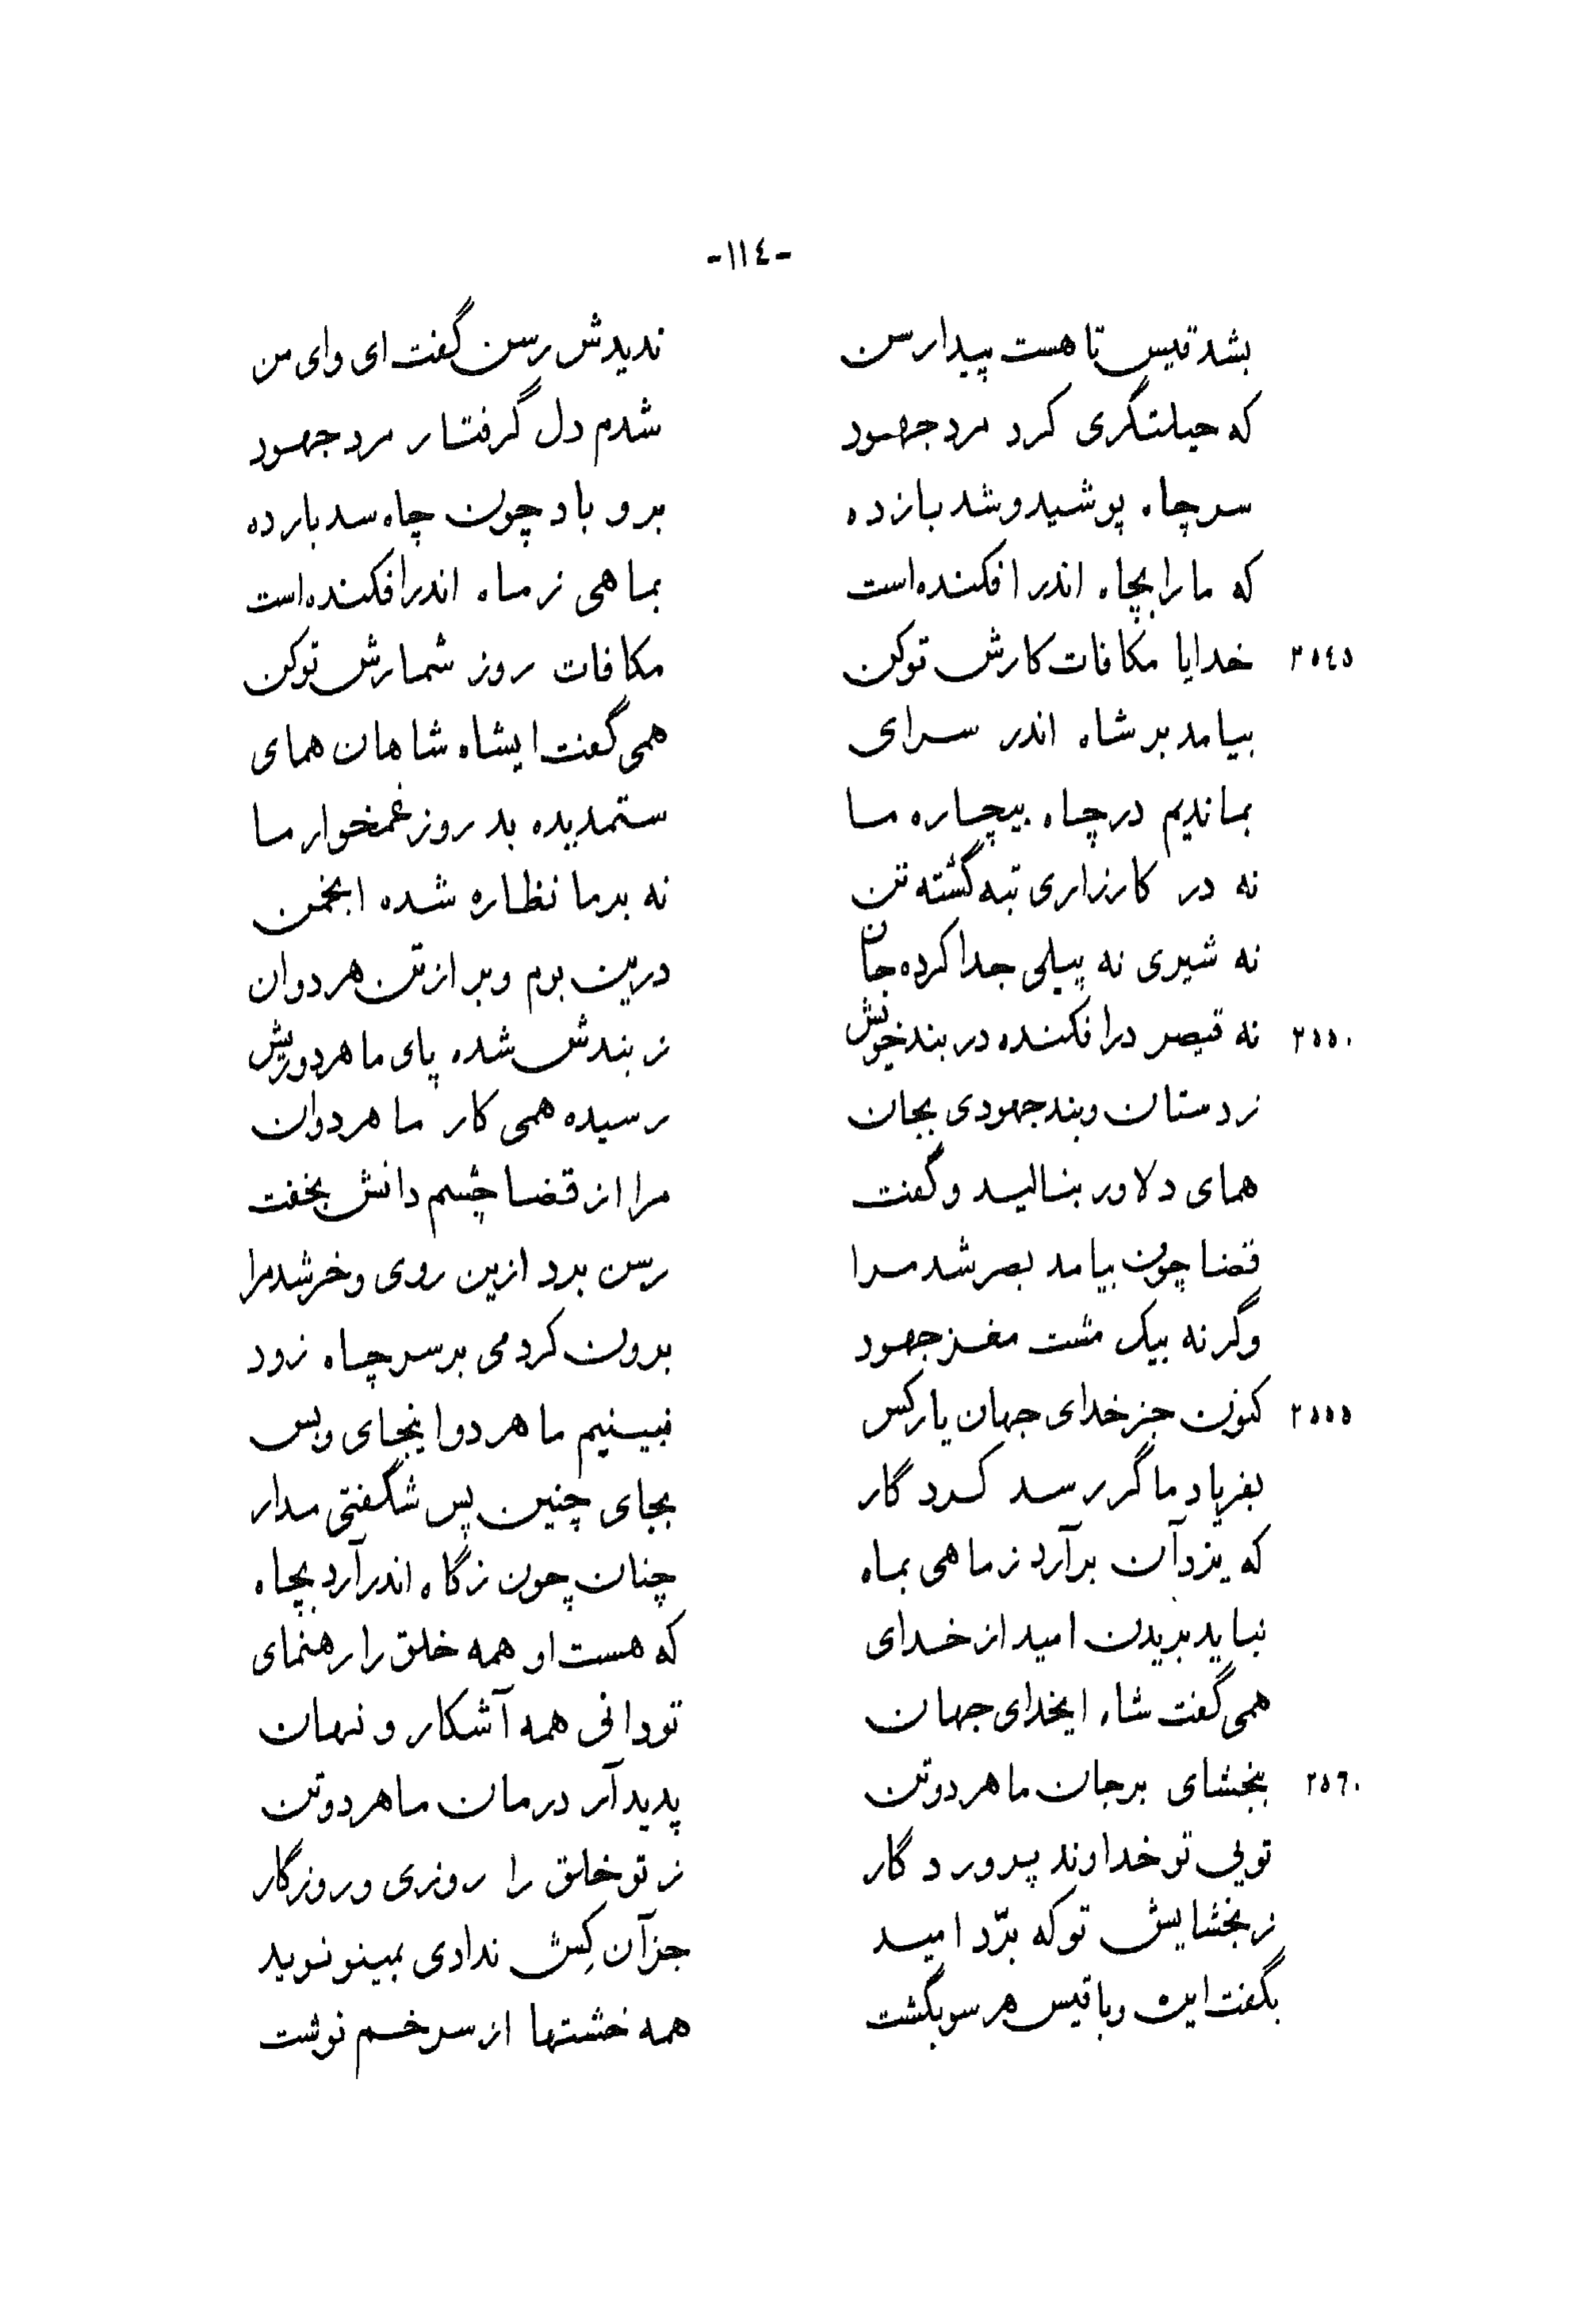 -١١٤-
بشد قیس تا هست پیدا رسن ندیدش رسن گفت ای وای من
که حیلتگری کرد مرد جهود شدم دل گرفتار مرد جهود
سر چاه پوشید و شد باز ده برو باد چون چاه سد بار ده
که ما را بچاه اندر افکنده است بماهی ز ماه اندر افکنده است
٢٥٤٥ خدایا مکافات کارش تو کن مکافات روز شمارش تو کن
بیامد بر شاه اندر سرای همی گفت ایشاه شاهان همای
بماندیم در چاه بیچاره ما ستمدیده بد روز غمخوار ما
نه در کارزاری تبه گشته تن نه بر ما نظاره شده انجمن
نه شیری نه پیلی جدا کرده جان درین بوم و بر از تن هر دوان
٢٥٥٠ نه قیصر در افکنده در بند خویش ز بندش شده پای ما هر دو ریش
ز دستان و بند جهودی بجان رسیده همی کار ما هر دوان
همای دلاور بنالید و گفت مرا از قضا چشم دانش بخفت
قضا چون بیامد بصر شد مرا رسن برد ازین روی و خر شد مرا
وگرنه بیک مشت مغز جهود برون کردمی بر سر چاه زود
٢٥٥٥ کنون جز خدای جهان یار کس نبینیم ما هر دو اینجای و بس
بفریاد ما گر رسد کردگار بجای چنین پس شگفتی مدار
که یزدان برآرد ز ماهی بماه چنان چون ز گاه اندر آرد بچاه
نباید بریدن امید از خدای که هست او همه خلق را رهنمای
همی گفت شاه ایخدای جهان تو دانی همه آشکار و نهان
٢٥٦٠ ببخشای بر جان ما هر دو تن پدید آر درمان ما هر دو تن
تویی تو خداوند پروردگار ز تو خلق را روزی و روزگار
ز بخشایش تو که برّد امید جز آن کِش ندادی بمینو نوید
بگفت این و با قیس هر سو بگشت همه خشتها از سر خم نوشت